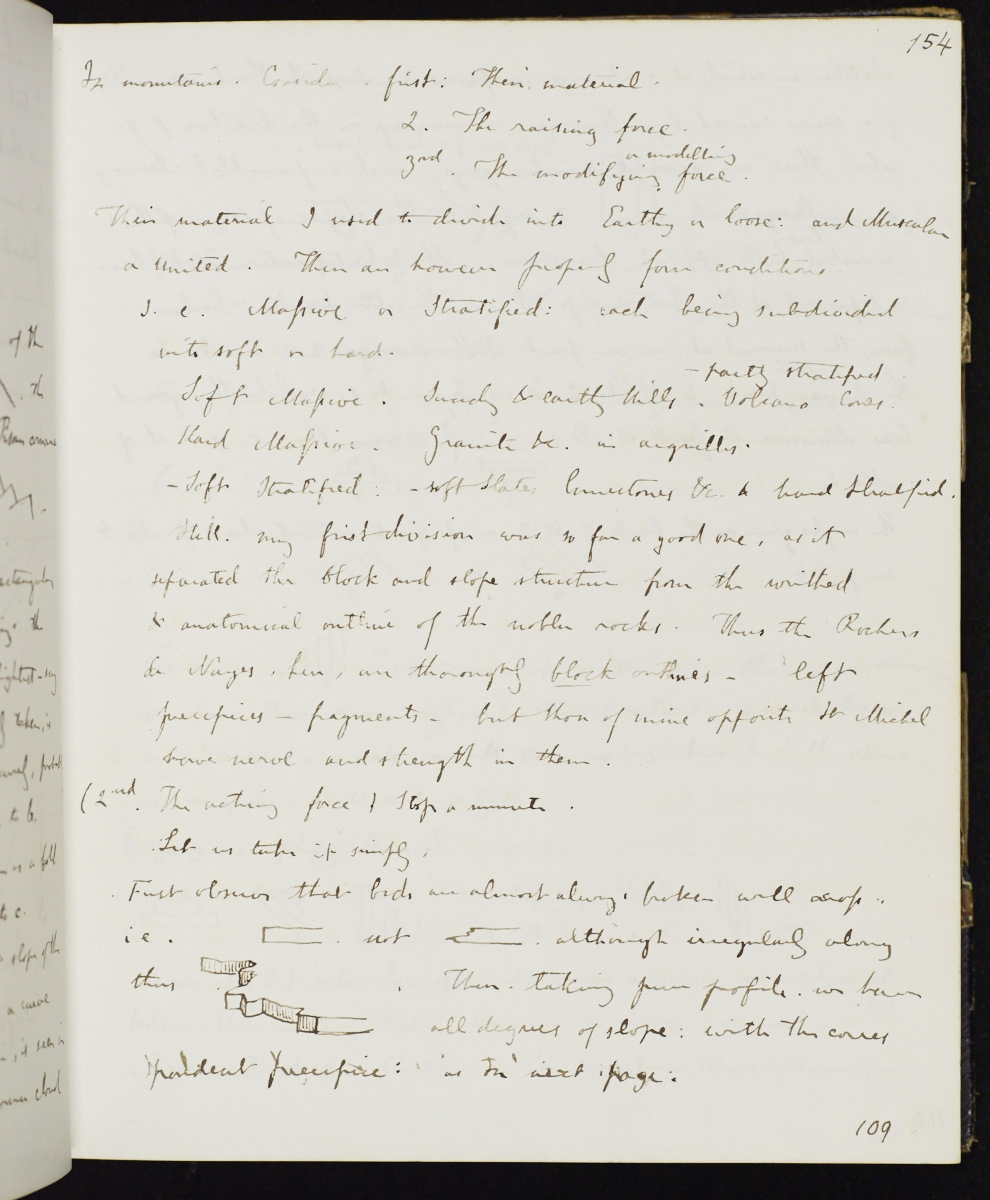 154
In mountains. Consider. first: Their material.
2. The raising force.
3rd. The modifying or modelling force.
Their material I used to divide into Earthy or loose: and Muscular
or united. There are however properly four conditions
i. e. Massive or Stratified: each being subdivided
into soft or hard.
- partly stratified.
Soft Massive. Sandy & earthy hills. Volcano Cones.
Hard Massive. Granite &c. in aiguilles.
- Soft Stratified: - soft slates limestones &c. & hard stratified.
Still. my first division was so far a good one, as it
separated the block and slope structure from the writhed
& anatomical outline of the nobler rocks. Thus the Rochers
de Nayes, here, are thoroughly block outlines - left
precipices - fragments - but those of mine opposite St Michel
have nerve and strength in them.
(2nd. The acting force) Stop a minute.
Let us take it simply.
First observe that beds are almost always broken well across.
i e. not although irregularly along
thus Then. taking pure profile. we have
all degrees of slope: with the corres
pondent precipice: as in next page:
109
of the
the
the
to be
to c.
slope of the
a curve
cloud